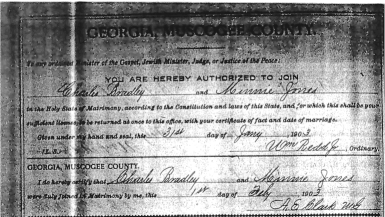 GEORGIA, MUSCOGEE COUNTY.
To any ordained Minister of the Gospel, Jewish Minister, Judge, or Justice of the Peace:
YOU ARE HEREBY AUTHORIZED TO JOIN
Charlie Bradley and Minnie Jones
in the Holy State of Matrimony, according to the Constitution and laws of this State, and for which this shall be your
sufficient license, to be returned to this office, with your certificate of fact and date of marriage.
Given under my hand and seal, this 31st day of Jany 1903
Wm Redd Jr, Ordinary
GEORGIA, MUSCOGEE COUNTY.
I do hereby certify that Charlie Bradley and Minnie Jones
were duly joined in Matrimony by me, this 1st day of Feby 1903
Clark